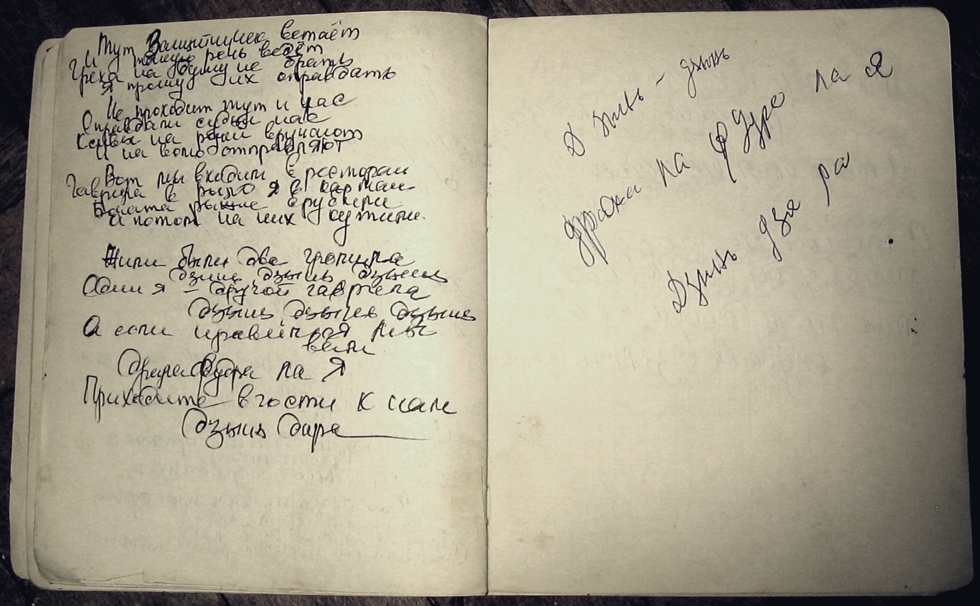 Тут Защитничек встаёт
И такую речь ведёт
Греха на душу не брать
Я прошу их оправдать
Не проходит тут и час
Оправдали судьи нас
Ксивы на руки вручают
И на волю отправляют
Вот мы входим в ресторан
Гаврила в рыло я в карман
рыжие
И потом на них кутили.
Жили были два громила
дзынь дзынь дзынь
Один я – другой гаврила
Дзынь дзынь дзынь
А если нравится я
вам
на я
Приходите в гости к нам
дзынь дара
Д зинь – дзинь
драна па фудро ла я
Дзинь дза ра